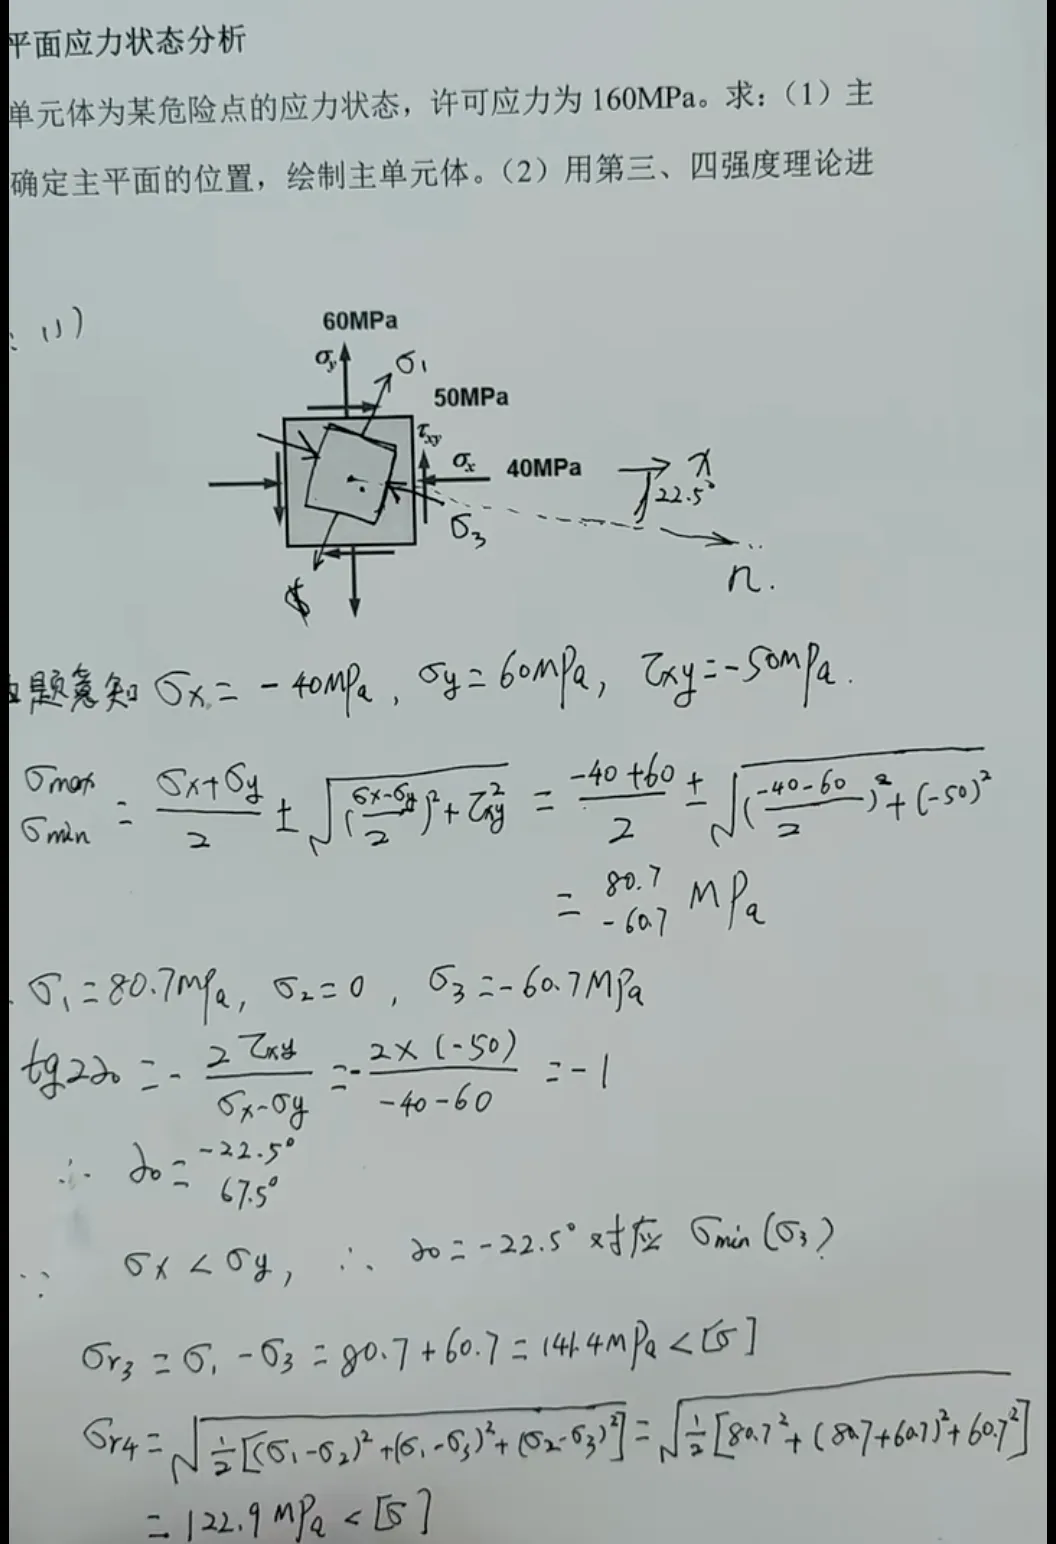 平面应力状态分析
单元体为某危险点的应力状态，许可应力为 160MPa。求：（1）主
确定主平面的位置，绘制主单元体。（2）用第三、四强度理论进
: (1)
60MPa
σy σ1
50MPa
τxy
σx 40MPa x
22.5°
σ3
n.
题意知 σx = -40MPa, σy = 60MPa, τxy = -50MPa.
σmax σmin = (σx+σy)/2 ± √((σx-σy)/2)²+τxy² = (-40+60)/2 ± √((-40-60)/2)²+(-50)²
= 80.7 -60.7 MPa
σ1 = 80.7MPa, σ2 = 0, σ3 = -60.7MPa
tg2α0 = - 2τxy/(σx-σy) = - 2×(-50)/(-40-60) = -1
∴ α0 = -22.5° 67.5°
∵ σx < σy, ∴ α0 = -22.5° 对应 σmin (σ3)
σr3 = σ1 - σ3 = 80.7 + 60.7 = 141.4MPa < [σ]
σr4 = √½[(σ1-σ2)²+(σ1-σ3)²+(σ2-σ3)²] = √½[80.7²+(80.7+60.7)²+60.7²]
= 122.9 MPa < [σ]